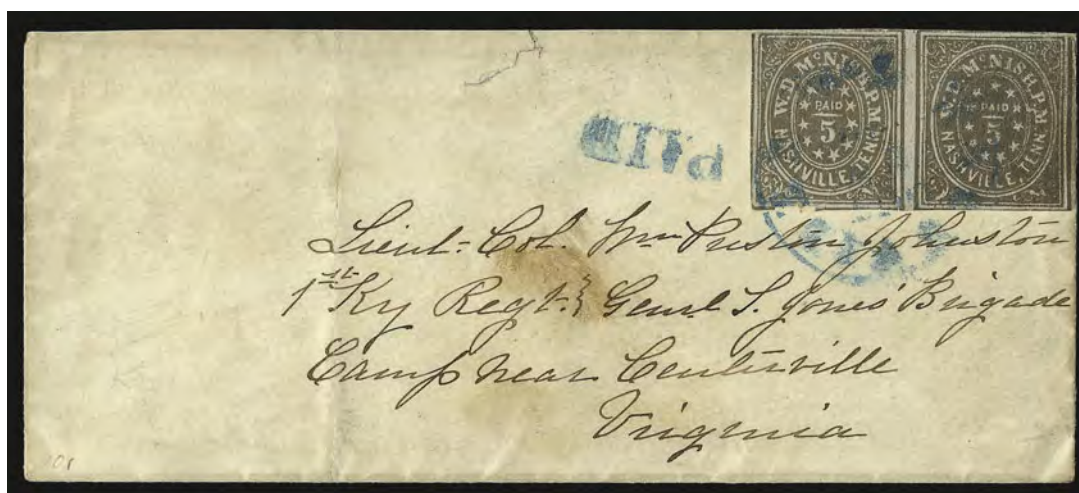 W.D. McNISH, P.M. PAID 5 NASHVILLE, TENN.
W.D. McNISH, P.M. PAID 5 NASHVILLE, TENN.
PAID
Lieut-Col. Wm Preston Johnston
1st Ky Regt. } Genrl S. Jones' Brigade
Camp near Centerville
Virginia
101